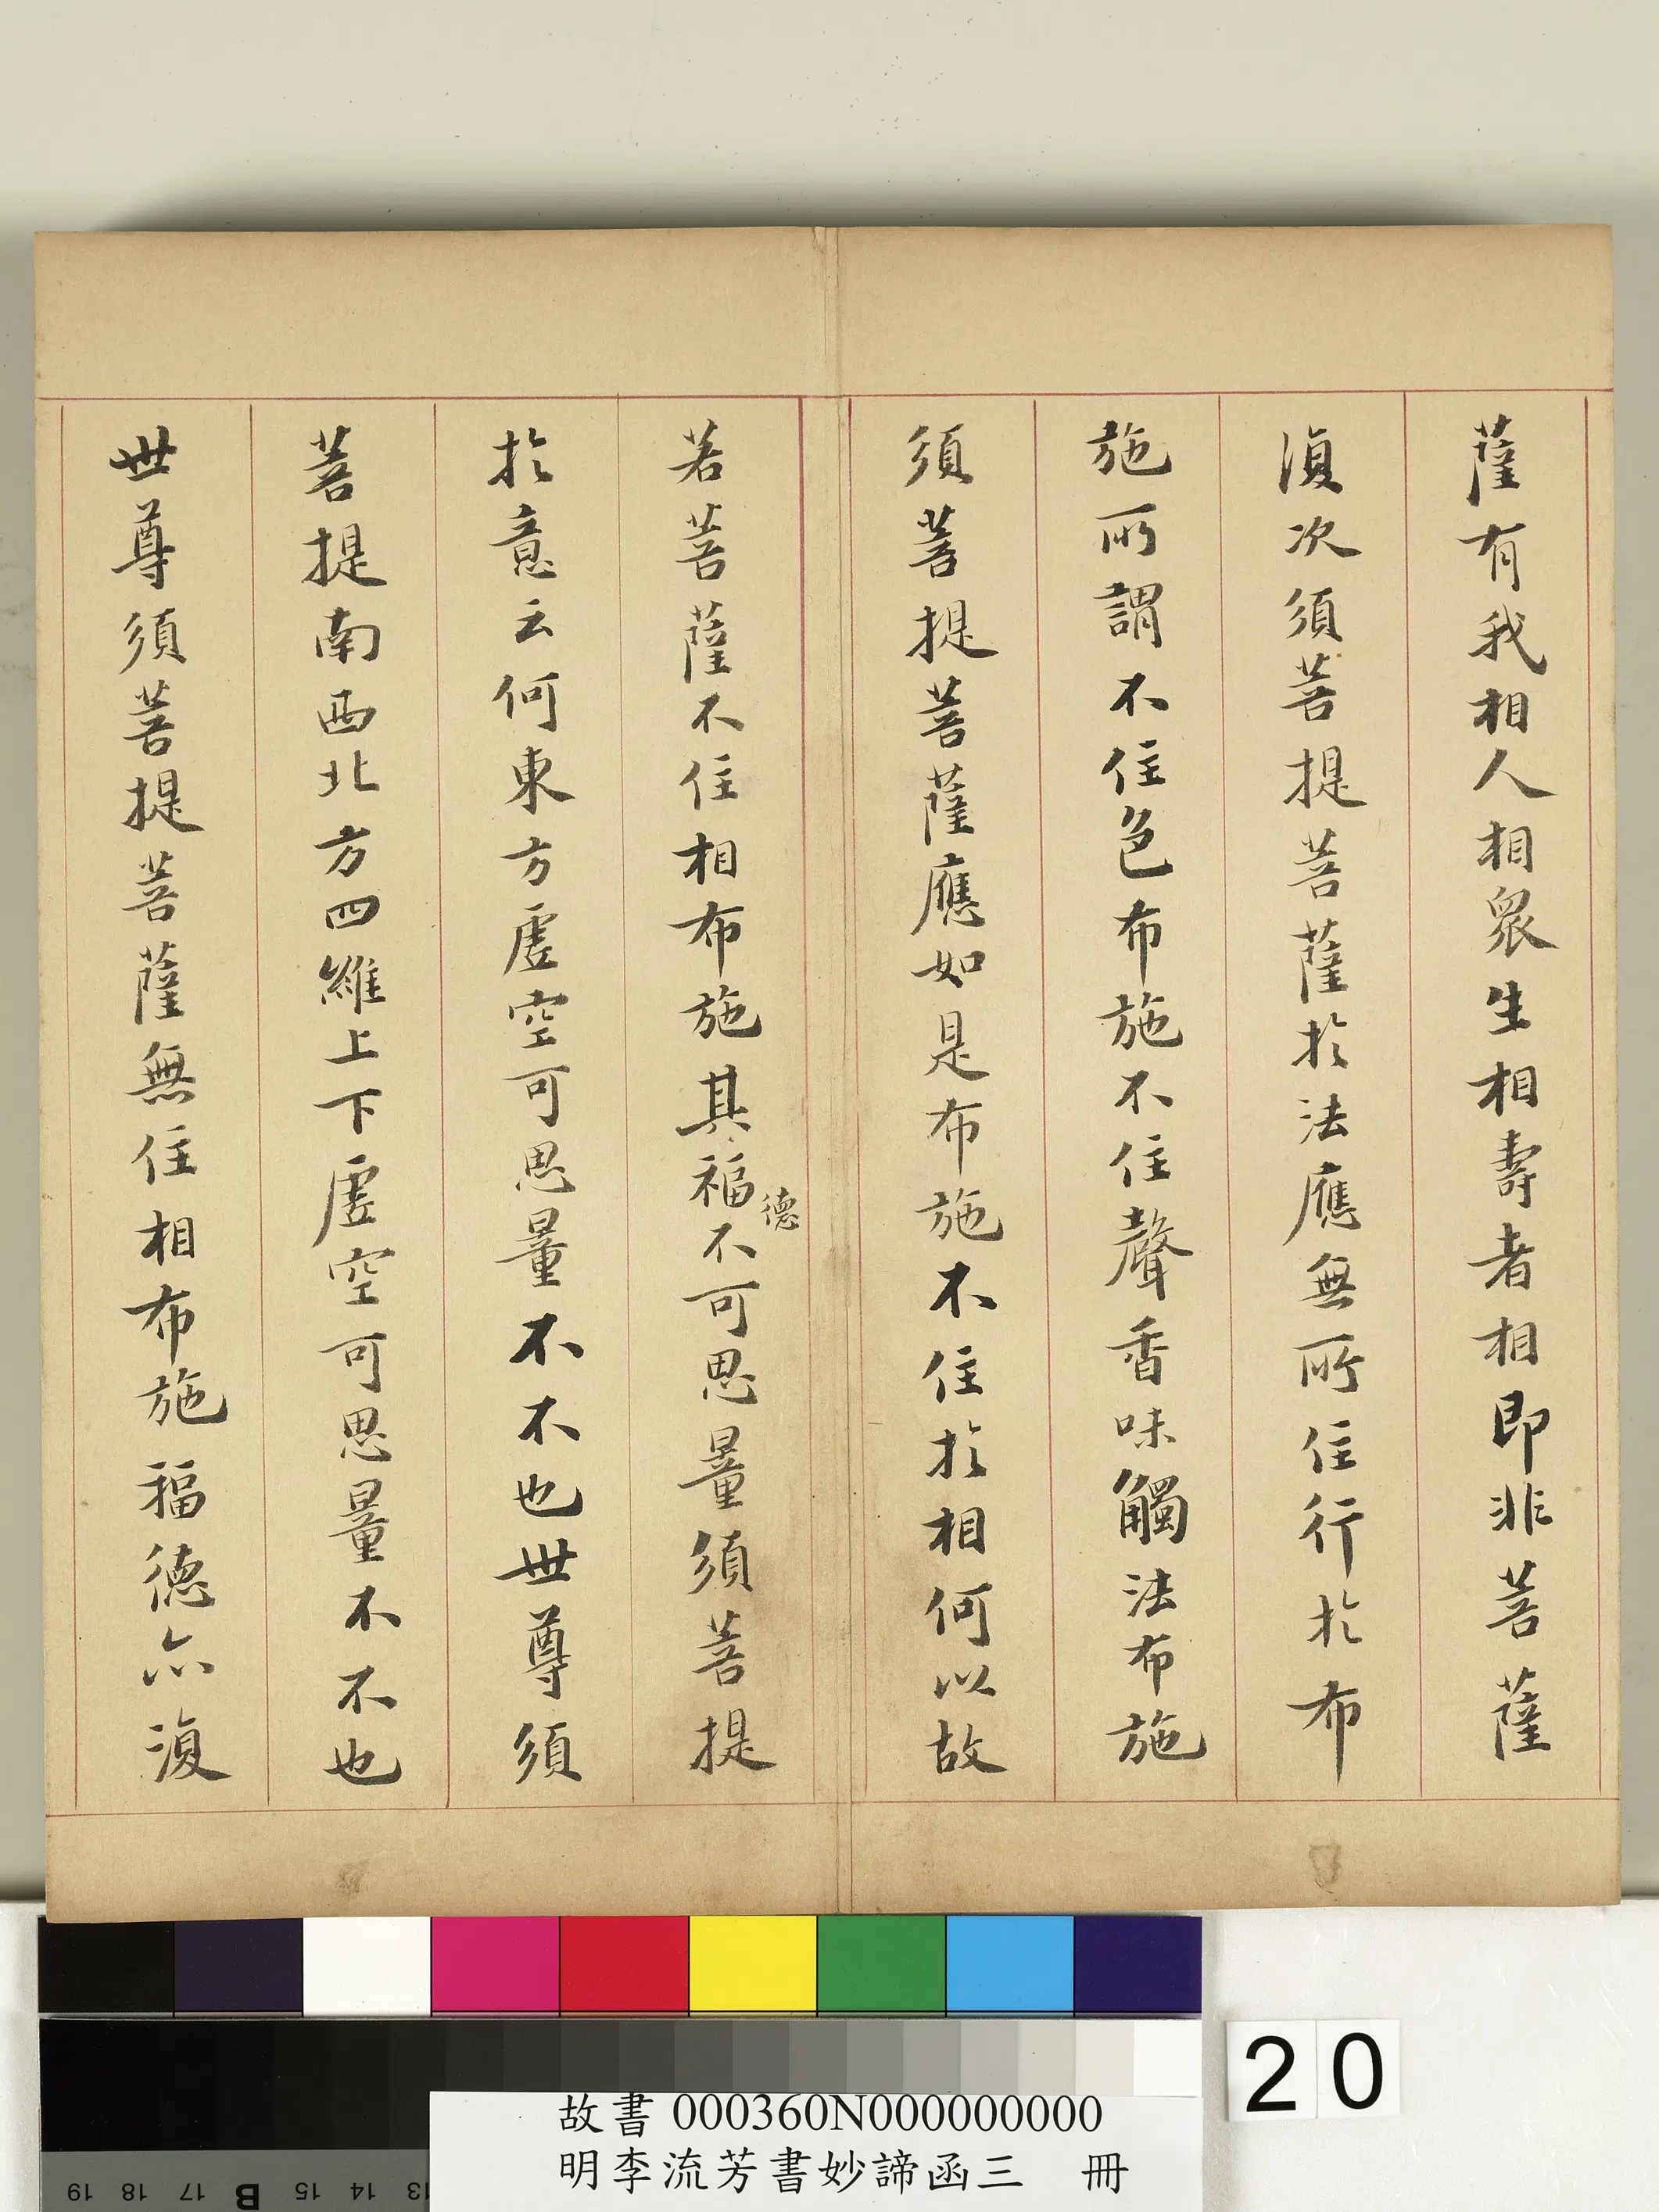 薩有我相人相衆生相壽者相即非菩薩
復次須菩提菩薩於法應無所住行於布
施所謂不住色布施不住聲香味觸法布施
須菩提菩薩應如是布施不住於相何以故
若菩薩不住相布施其福德不可思量須菩提
於意云何東方虛空可思量不不也世尊須
菩提南西北方四維上下虛空可思量不不也
世尊須菩提菩薩無住相布施福德亦復
20
故書 000360N000000000
明李流芳書妙諦函三 冊
19 18 17 B 15 14 13